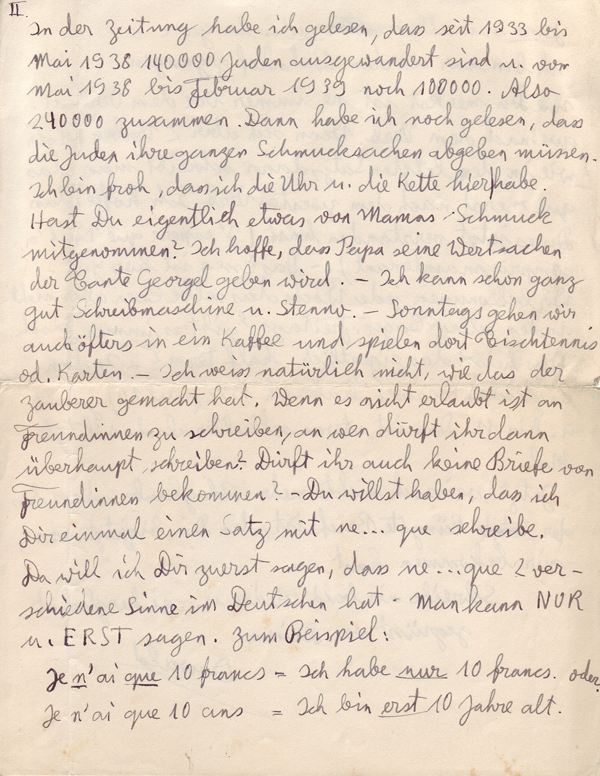 II.
In der Zeitung habe ich gelesen, dass seit 1933 bis
Mai 1938 140000 Juden ausgewandert sind u. vom
Mai 1938 bis Februar 1939 noch 100000. Also
240000 zusammen. Dann habe ich noch gelesen, dass
die Juden ihre ganzen Schmucksachen abgeben müssen.
Ich bin froh, dass ich die Uhr u. die Kette hier habe.
Hast Du eigentlich etwas von Mamas Schmuck
mitgenommen? Ich hoffe, dass Papa seine Wertsachen
der Tante Georgel geben wird. – Ich kann schon ganz
gut Schreibmaschine u. Steno. – Sonntags gehen wir
auch öfters in ein Kaffee und spielen dort Tischtennis
od. Karten. – Ich weiss natürlich nicht, wie das der
Zauberer gemacht hat. Wenn es nicht erlaubt ist an
Freundinnen zu schreiben, an wen dürft ihr dann
überhaupt schreiben? Dürft ihr auch keine Briefe von
Freundinnen bekommen? – Du willst haben, dass ich
Dir einmal einen Satz mit ne... que schreibe.
Da will ich Dir zuerst sagen, dass ne...que 2 ver-
schiedene Sinne im Deutschen hat. Man kann NUR
u. ERST sagen. Zum Beispiel:
Je n'ai que 10 francs = Ich habe nur 10 francs. oder
Je n'ai que 10 ans = Ich bin erst 10 Jahre alt.